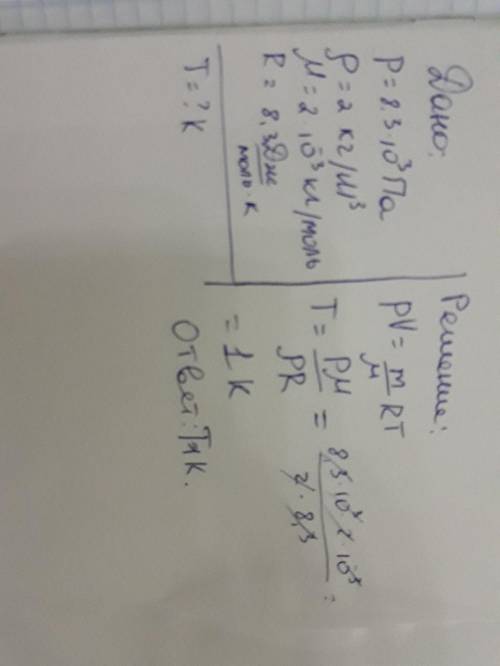 Дано:
P = 8.3·10³ Па
ρ = 2 кг/м³
M = 2·10⁻³ кг/моль
R = 8,3 Дж/моль·К
T = ? К
Решение:
PV = m/M RT
T = PM/ρR = 8,3·10³·2·10⁻³/2·8,3 =
= 1 К